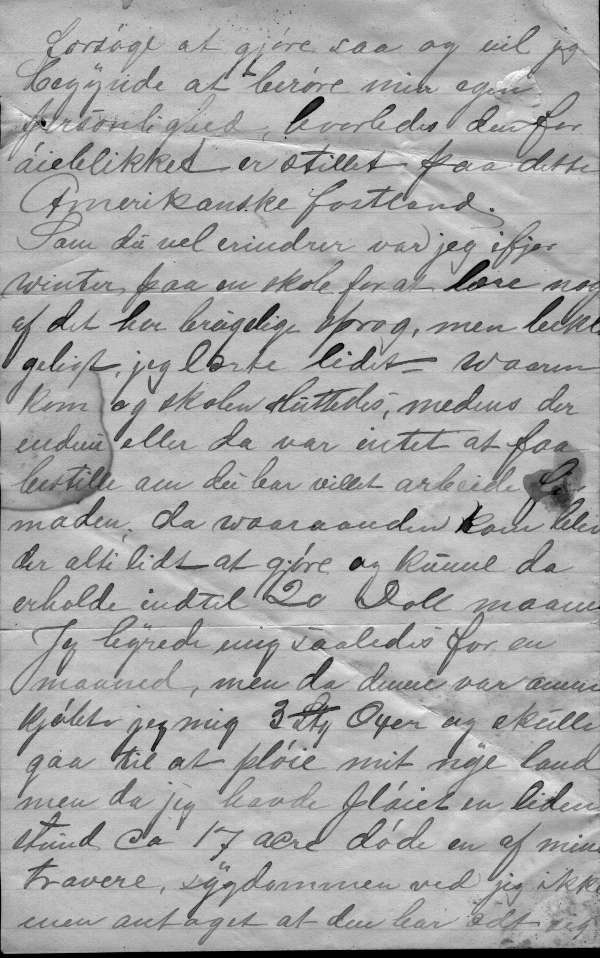 forsøge at gjøre saa og vil jeg
begynde at berøre min egen
personlighed, hvorledes den for
øieblikket er stillet paa dette
Amerikanske fastland.
Som du vel erindrer var jeg ifjor
winter paa en skole for at lære nog
af det her brugelige sprog, men bekl
geligt, jeg lærte lidet – waaren
kom og skolen sluttedes, medens der
endnu eller da var intet at faa
bestille om du har villet arbeide for
maden, da waaraanden kom blev
der altid lidt at gjøre og kunne da
erholde indtil 20 Doll maane
Jeg hyrede mig saaledes for en
maaned, men da denne var omme
kjøbte jeg mig 3 Stk Oxer og skulle
gaa til at pløie mit nye land
men da jeg havde pløiet en liden
stund ca 17 acre døde en af mine
travere, sygdommen ved jeg ikke
men antaget at den har ædt sig